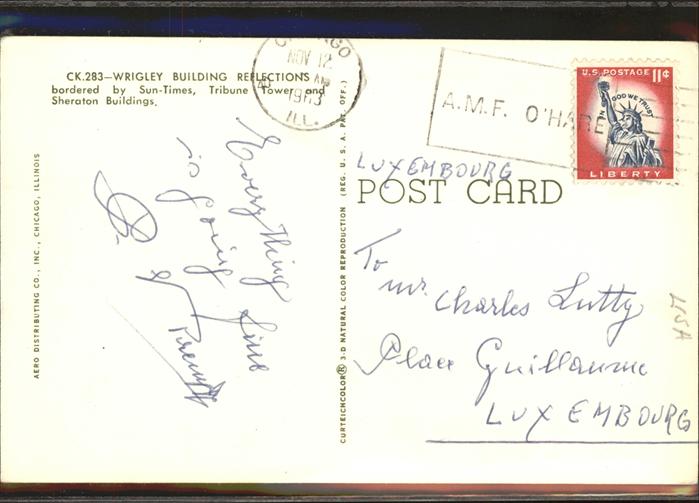 CK.283—WRIGLEY BUILDING REFLECTIONS
bordered by Sun-Times, Tribune Tower and
Sheraton Buildings.
CHICAGO
NOV 12
1963
ILL.
A.M.F. O'HARE
U.S. POSTAGE 11¢
IN GOD WE TRUST
LIBERTY
Everything
is going fine
AERO DISTRIBUTING CO., INC., CHICAGO, ILLINOIS
CURTEICHCOLOR® 3-D NATURAL COLOR REPRODUCTION (REG. U. S. A. PAT. OFF.)
LUXEMBOURG
POST CARD
To
Mr. Charles Lutty
Place Guillaume
LUXEMBOURG
USA